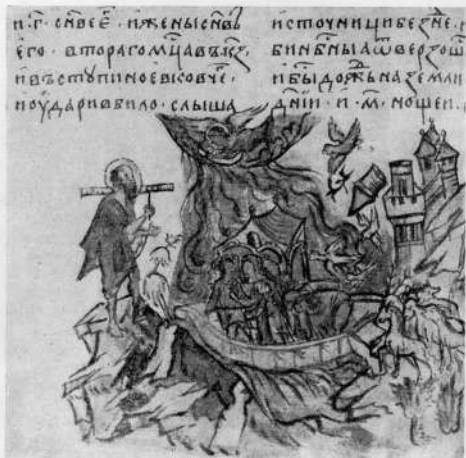 и·г· сн҃ве е҃· и жены сн҃въ
его· втораго мц҃а въ кз҃·
и въстꙋпи ное в ковче·
и оудари в било· слыша
источници безне·
бин҃ бн҃ыѧ ѿверзош
и бы дождь на земли
дн҃ии· и· м҃· нощеи·